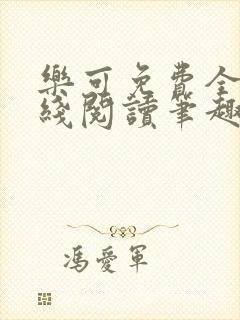 樂可免費全
綫閱讀筆趣
馮愛軍